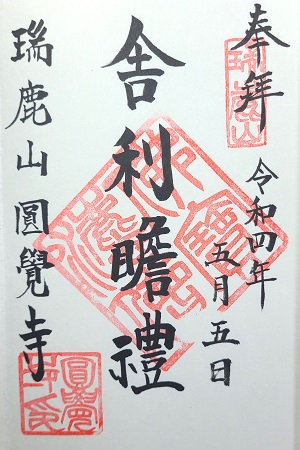 奉拝
令和四年
五月五日
舎利瞻禮
瑞鹿山圓覺寺
瑞鹿山